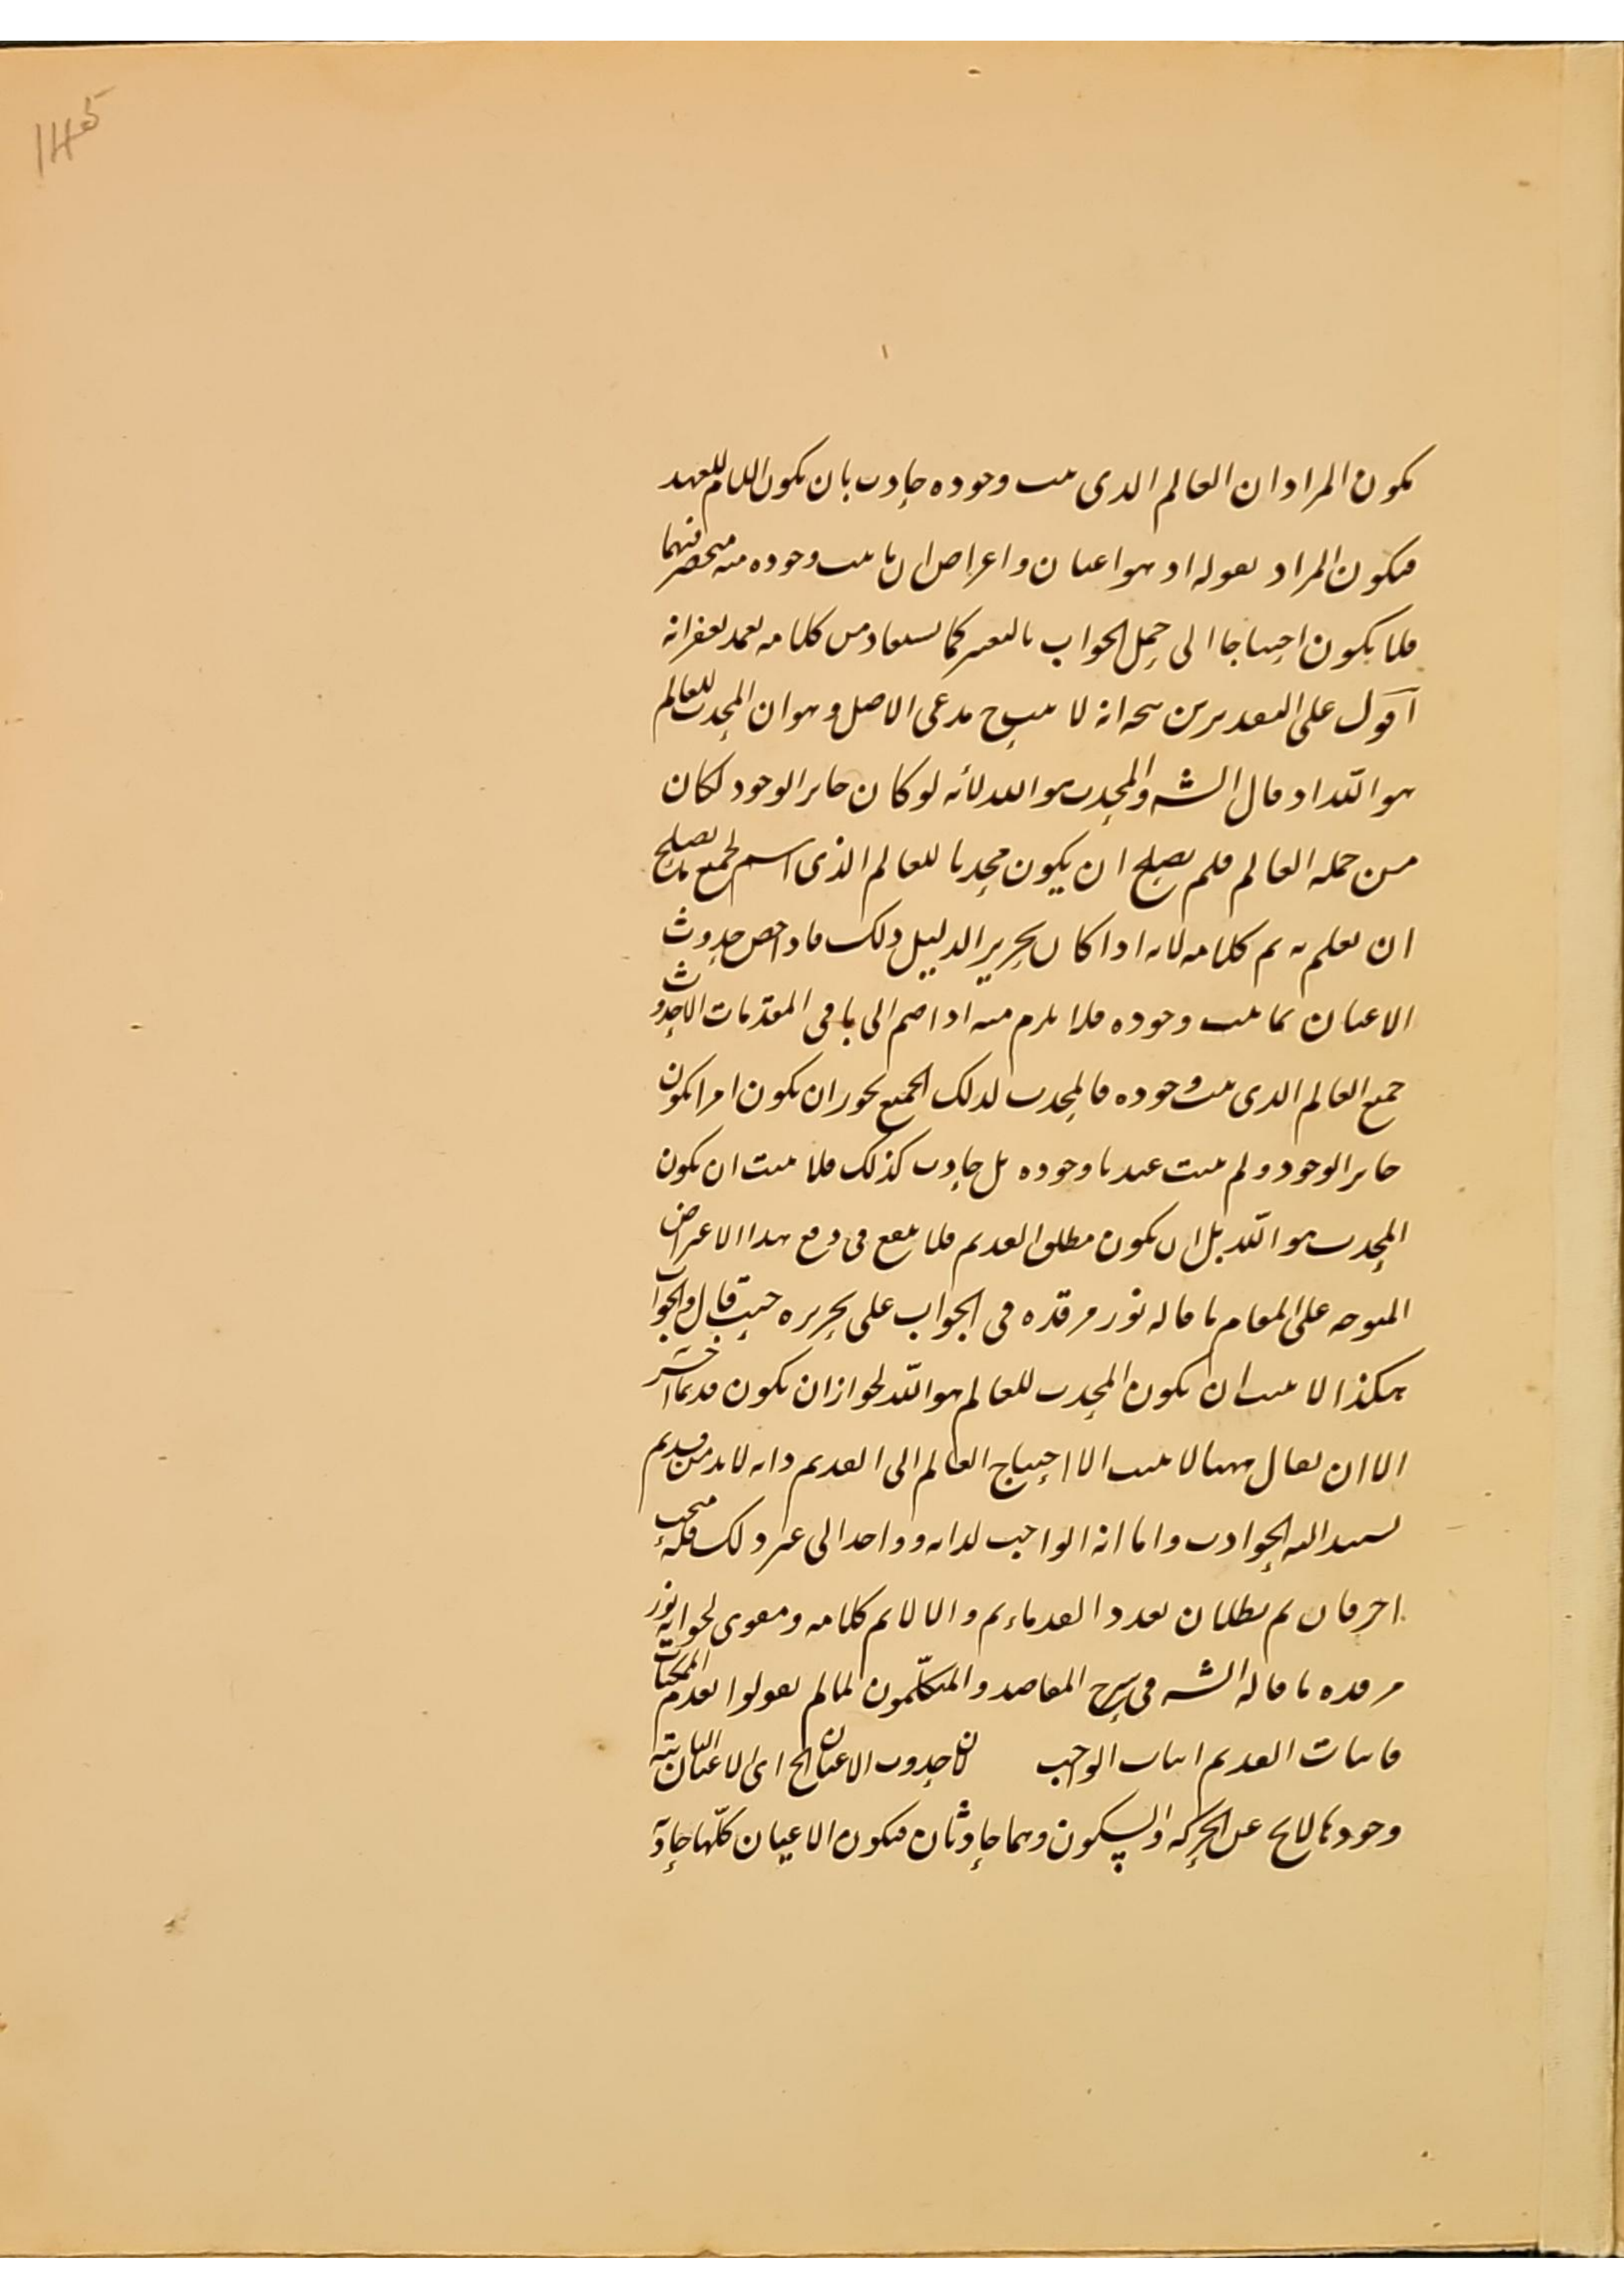 145
يكون المراد ان العالم الذى ثبت وجوده حادث بان يكون اللام للعهد
فيكون المراد بقوله اذ هو اعيان واعراض ان ما ثبت وجوده منه منحصر فيهما
فلا يكون احتياجا الى حمل الجواب بالتغيير كما يستفاد من كلامه تغمد بغفرانه
اقول على التقديرين يتجه انه لا ينتج مدعى الاصل وهو ان المحدث للعالم
هو الله اذ قال الشه والمحدث هو الله لانه لو كان جايز الوجود لكان
من جمله العالم فلم يصلح ان يكون محدثا للعالم الذى اسم لجميع ما يصلح
ان يعلم به تم كلامه لانه اذا كان تحرير الدليل ذلك فاذا خص حدوث
الاعيان بما ثبت وجوده فلا يلزم منه اذا ضم الى باقى المقدمات الا حدوث
جميع العالم الذى ثبت وجوده فالمحدث لذلك الجميع يجوز ان يكون امرا يكون
جايز الوجود ولم يثبت عندنا وجوده بل حادث كذلك فلا يثبت ان يكون
المحدث هو الله بل ان يكون مطلق القديم فلا ينفع فى دفع هذا الاعتراض
المتوجه على المقام ما قاله نور مرقده فى الجواب على تحريره حيث قال والجواب
هكذا لا يثبت ان يكون المحدث للعالم هو الله لجواز ان يكون قديما آخر
الا ان يقال ههنا لا يثبت الا احتياج العالم الى القديم وانه لا بد من قديم
يستند اليه الحوادث واما انه الواجب لذاته وواحد الى غير ذلك فله مبحث
اخر فان تم بطلان تعدد القدماء تم والا لا تم كلامه ومقوى لجوابه نور
مرقده ما قاله الشه فى شرح المقاصد والمتكلمون لما لم يقولوا بقدم الممكنات
فاثبات القديم اثبات الواجب لان حدوث الاعيان الخ اى لان الاعيان الثابتة
وجودها لا يخ عن الحركه والسكون وهما حادثان فيكون الاعيان كلها حادثة